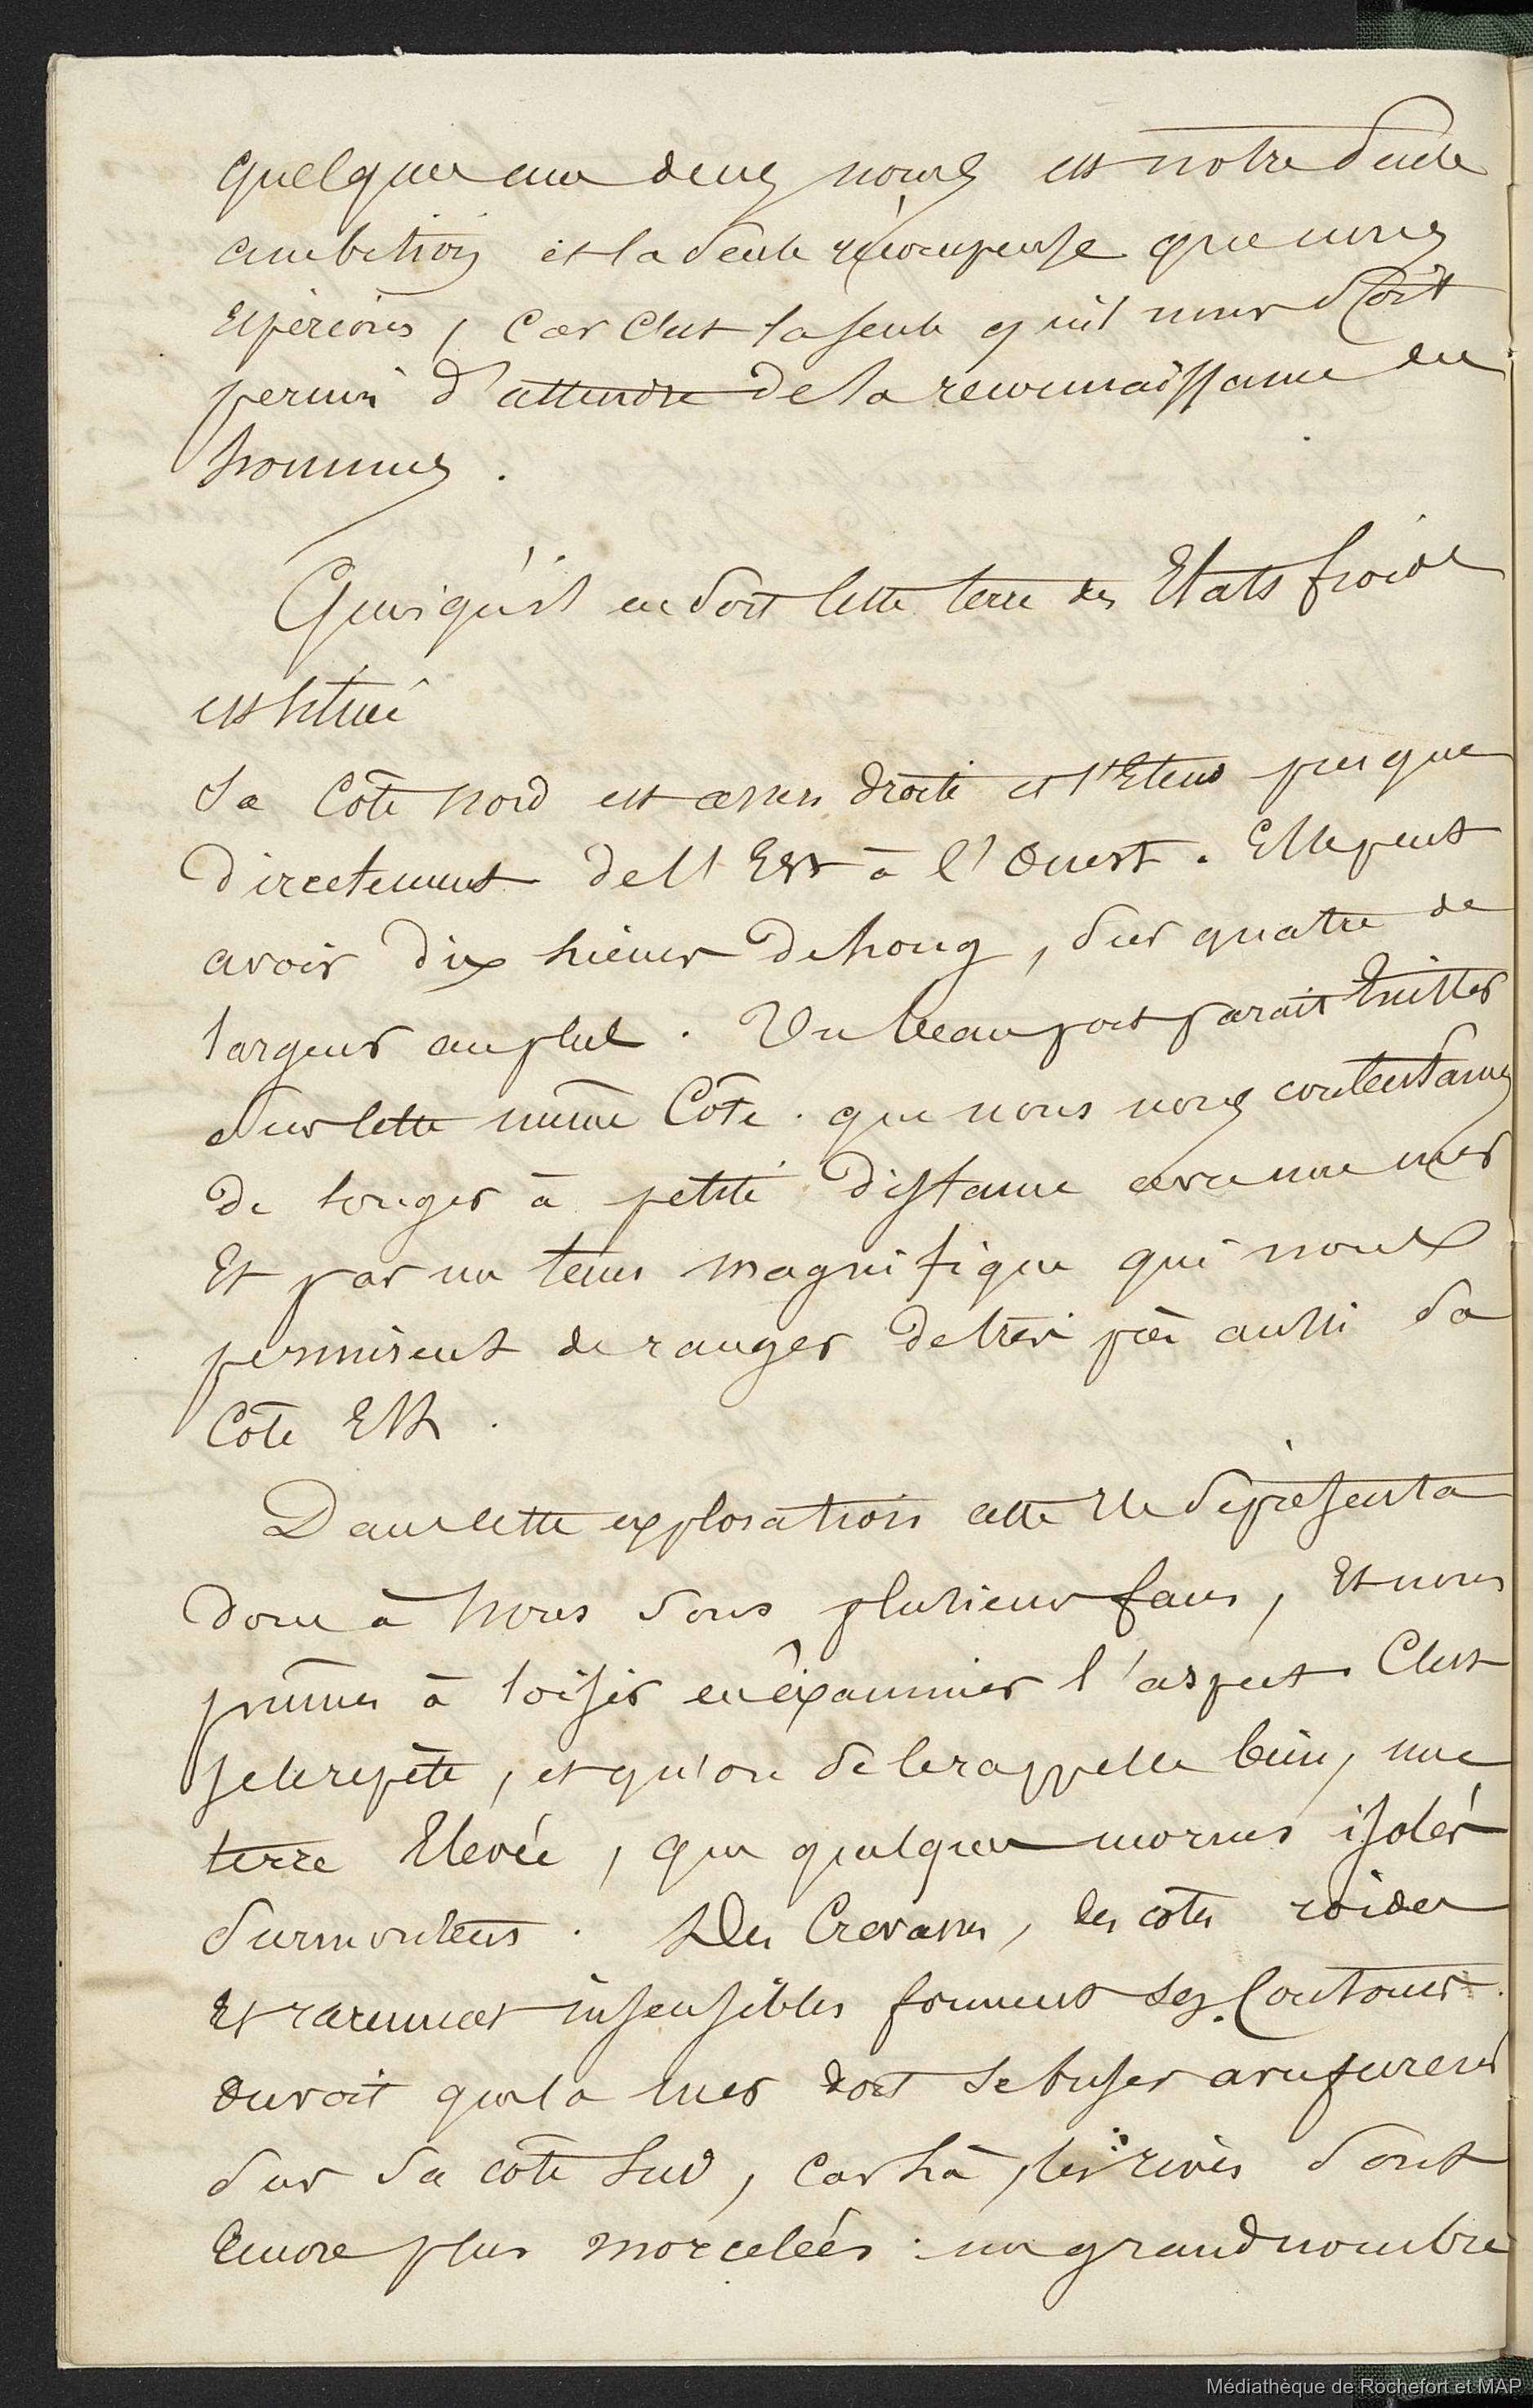 quelques uns deux nous est notre seule
ambition et la seule récompense que nous
Espérions, Car C'est la seule qu'il nous soit
permis d'attendre de la reconnaissance des
hommes.
Quoiqu'il en soit Cette terre des Etats froide
est située
Sa Côte nord est assez droite et s'Etend presque
Directement de l'Est à l'Ouest. Elle peut
avoir dix lieues de long, sur quatre de
largeur au plus. Un beau port parait Exister
Sur Cette même Côte. que nous nous contentames
de longer à petite distance avec une mer
Et par un tems magnifique qui nous
permirent de ranger de très près aussi sa
Côte Est.
Dans cette exploration cette Ile se présenta
donc à nous sous plusieurs faces, Et nous
pûmes à loisir en éxaminer l'aspect. C'est
je le répète, et qu'on se le rappelle bien, une
terre Elevée, que quelques mornes isolés
surmontent. Des Crevasses, des côtes roides
Et rarement insensibles forment ses Contours.
on voit que la mer doit se briser avec fureur
sur sa côte Sud, Car là, les rives sont
Encore plus morcelées: un grand nombre
Médiathèque de Rochefort et MAP